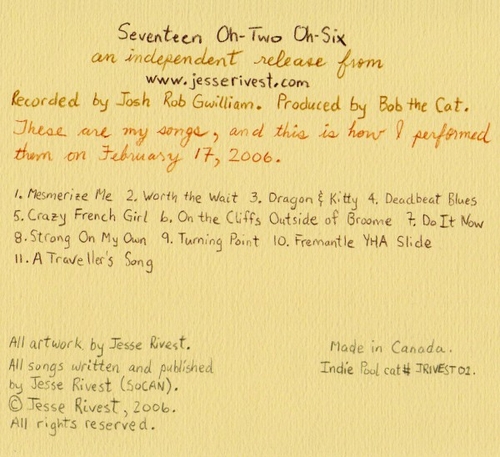 Seventeen Oh-Two Oh-Six
an independent release from
www.jesserivest.com
Recorded by Josh Rob Gwilliam. Produced by Bob the Cat.
These are my songs, and this is how I performed
them on February 17, 2006.
1. Mesmerize Me 2. Worth the Wait 3. Dragon & Kitty 4. Deadbeat Blues
5. Crazy French Girl 6. On the Cliffs Outside of Broome 7. Do It Now
8. Strong On My Own 9. Turning Point 10. Fremantle YHA Slide
11. A Traveller's Song
All artwork by Jesse Rivest.
All songs written and published
by Jesse Rivest (SOCAN).
© Jesse Rivest, 2006.
All rights reserved.
Made in Canada.
Indie Pool cat# JRIVEST02.